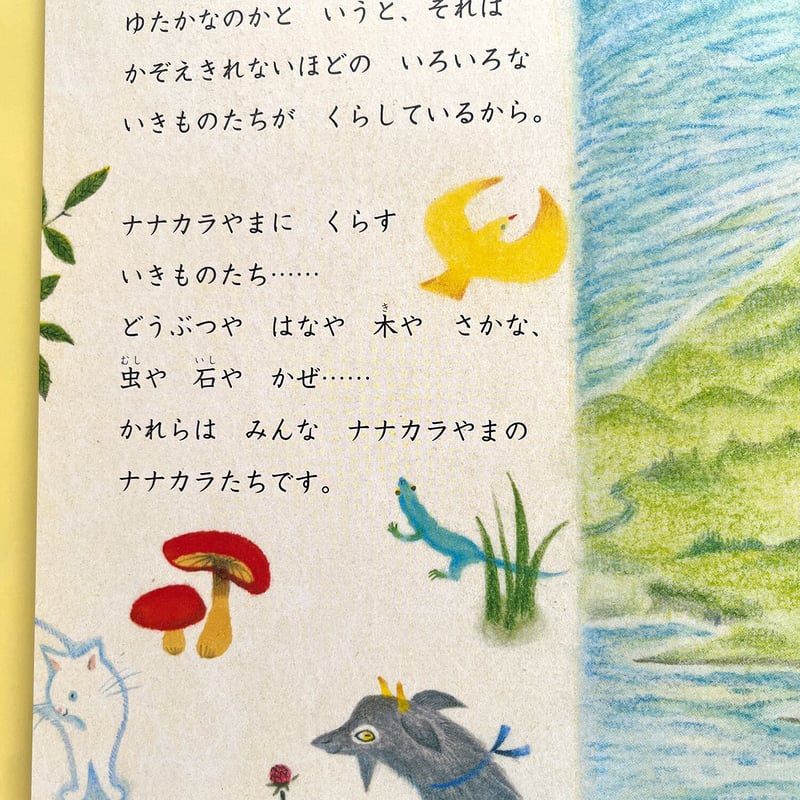 ゆたかなのかと　いうと、それは
かぞえきれないほどの　いろいろな
いきものたちが　くらしているから。
ナナカラやまに　くらす
いきものたち……
どうぶつや　はなや　木や　さかな、
虫や　石や　かぜ……
かれらは　みんな　ナナカラやまの
ナナカラたちです。